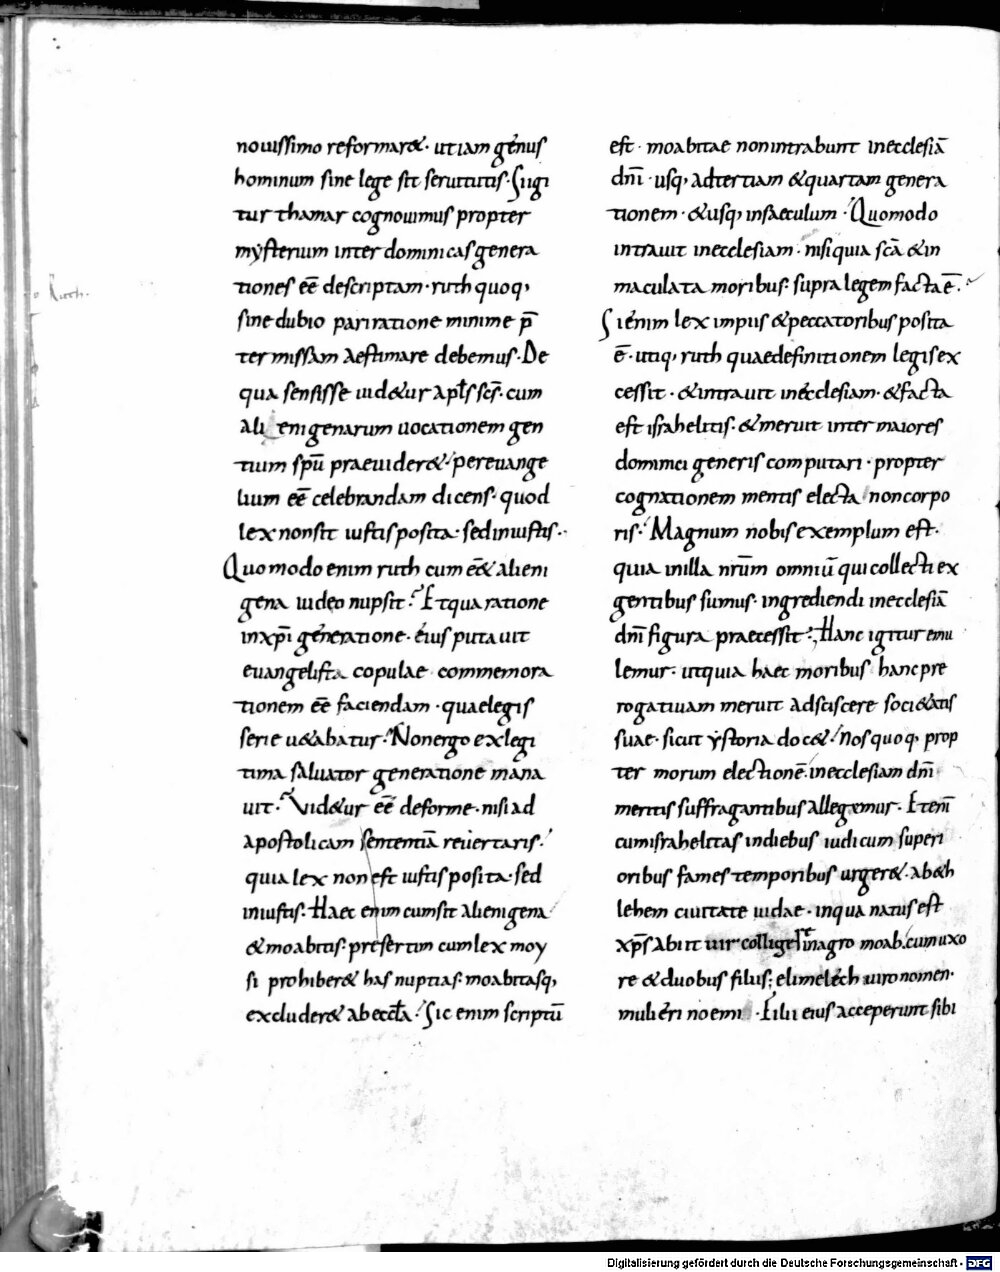 Ruth.
nouissimo reformar&· ut iam genus
hominum sine lege sit seruitutis· Sigi
tur thamar cognouimus propter
mysterium inter dominicas genera
tiones eē descriptam· ruth quoq,
sine dubio pari ratione minime p̄
termissam aestimare debemus· De
qua sensisse uid&ur apłs scs̄· cum
alienigenarum uocationem gen
tium spū praeuider&· per euange
lium eē celebrandam dicens· quod
lex non sit iustis posita· sed iniustis·
Quomodo enim ruth cum eē& alieni
gena iudeo nupsit? Et qua ratione
in xp̄i generatione· eius putauit
euangelista copulae commemora
tionem eē faciendam· quae legis
serie u&abatur? Non ergo ex legi
tima saluator generatione mana
uit? Uid&ur eē deforme· nisi ad
apostolicam sententiā reuertaris·
quia lex non est iustis posita· sed
iniustis· Haec enim cum sit alienigena
& moabitis· presertim cum lex moy
si prohiber& has nuptias· moabitasq,
excluder& ab eccła· Sic enim scriptū
est· moabitae non intrabunt in ecclesiā
dnī· usq, ad tertiam & quartam genera
tionem· & usq, in saeculum· Quomodo
intrauit in ecclesiam· nisi quia scā & in
maculata moribus· supra legem facta ē·
Si enim lex impiis & peccatoribus posita
ē· utiq, ruth quae definitionem legis ex
cessit· & intrauit in ecclesiam· & facta
est israhelitis· & meruit inter maiores
dominici generis computari· propter
cognationem mentis electa non corpo
ris· Magnum nobis exemplum est·
quia in illa nrū̄m omniū qui collecti ex
gentibus sumus· ingrediendi in ecclesiā
dnī figura praecessit· Hanc igitur emu
lemur· ut quia haec moribus hanc pre
rogatiuam meruit adsciscere soci&atis
suae· sicut ystoria doc&· Nos quoq, prop
ter morum electionē· in ecclesiam dnī
meritis suffragantibus allegemur· Etenī
cum israhelitas in diebus iudicum superi
oribus fames temporibus urger&· ab &h
lehem ciuitate iudae· in qua natus est
xps̄ abiit uir colligese in agro moab· cum uxo
re & duobus filiis; elimelech uiro nomen·
mulieri noemi· Filii eius acceperunt sibi
Digitalisierung gefördert durch die Deutsche Forschungsgemeinschaft - DFG